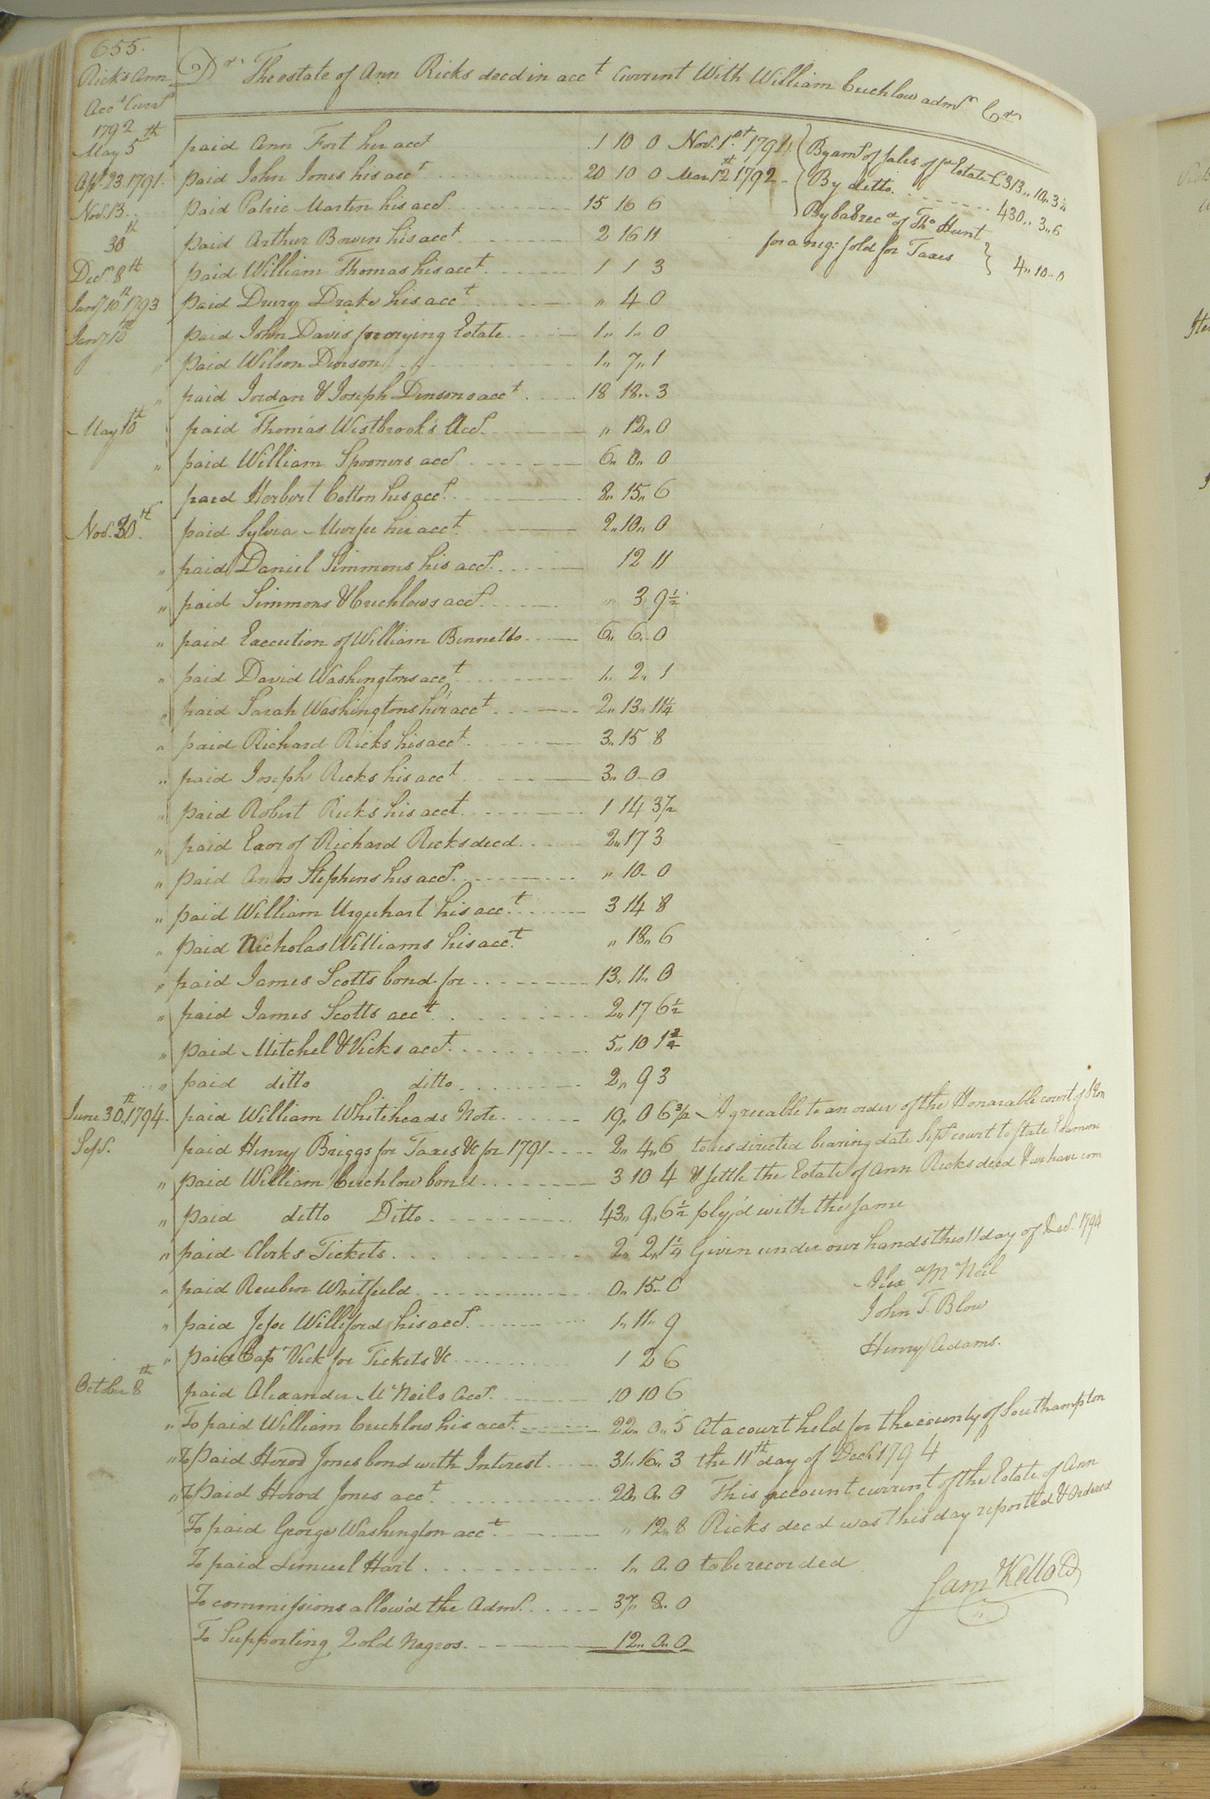 655.
Ricks Ann
Acct Curt
Dr. The estate of Ann Ricks decd in acct Current With William Cuchlow admr Cr
1792
May 5th paid Ann Fort her acct 1 10 0
Apl. 23. 1791. paid John Jones his acct 20 10 0
Nov. 13. paid Patric Martin his acct 15 16 6
30th paid Arthur Bowin his acct 2 16 11
Decr 8th paid William Thomas his acct 1 1 3
Jany 10th 1793 paid Drury Drake his acct " 4 0
Jany 10th paid John Davis for crying Estate 1 " 1 " 0
" paid Wilson Denson 1 " 7 " 1
" paid Jordan & Joseph Densons acct 18 18 " 3
May 10th paid Thomas Westbrook's Acct " 12 " 0
" paid William Spooners acct 6 " 0 " 0
paid Herbert Cotton his acct 8 " 15 " 6
Nov. 30th paid Sylvia Murfee her acct 2 " 10 " 0
" paid Daniel Simmons his acct 12 11
" paid Simmons & Cuchlows acct " 3 9½
" paid Execution of William Bennetts 6 " 6 " 0
" paid David Washingtons acct 1 " 2 " 1
" paid Sarah Washingtons her acct 2 " 13 " 11¼
" paid Richard Ricks his acct 3 " 15 8
" paid Joseph Ricks his acct 3 " 0 - 0
" paid Robert Ricks his acct 1 14 3½
" paid Exor of Richard Ricks decd 2 " 17 3
" paid Amos Stephens his acct " 10 - 0
" paid William Urquhart his acct 3 14 8
" paid Nicholas Williams his acct " 18 " 6
" paid James Scotts bond for 13 " 11 " 0
" paid James Scotts acct 2 " 17 6½
" paid Mitchel & Vicks acct 5 " 10 1¾
" paid ditto ditto 2 " 9 3
June 30th 1794. paid William Whiteheads Note 19 " 0 6¾
Sept. paid Henry Briggs for Taxes &c for 1791 2 " 4 " 6
" paid William Cuchlow bond 3 10 4
" paid ditto Ditto 43 " 9 " 6½
" paid Clerks Tickets 2 " 2 " 1¼
" paid Reuben Whitfield 0 " 15 - 0
" paid Jesse Williford his acct 1 " 11 " 9
" paid Capt Vick for Tickets &c 1 2 6
October 8th paid Alexander McNeils acct 10 10 6
" To paid William Cuchlow his acct 22 " 0 " 5
" To paid Herod Jones bond with Interest 31 " 16 " 3
" To paid Herod Jones acct 20 " 0 " 0
To paid George Washington acct " 12 " 8
To paid Lemuel Hart 1 " 0 " 0
To commissions allow'd the Admr 37 " 8 " 0
To Supporting 2 old Negros 12 " 0 " 0
Novr 1st 1791 By amt of sales of pr Estate £313 " 10 " 3¼
Mar 12th 1792 By ditto 430 " 3 " 6
By bal recd of Thos Hunt
for a neg: sold for Taxes 4 " 10 - 0
Agreeable to an order of the Honarable court of Ston
to us directed bearing date Sept court to state Examine
& settle the Estate of Ann Ricks decd & we have com
ply'd with the same
Given under our hands this 11 day of Decr. 1794
Alexr McNeil
John T. Blow
Henry Adams.
At a court held for the county of Southampton
the 11th day of Decr 1794
This account current of the Estate of Ann
Ricks decd was this day reported & Ordered
to be recorded
Saml Kello Cl